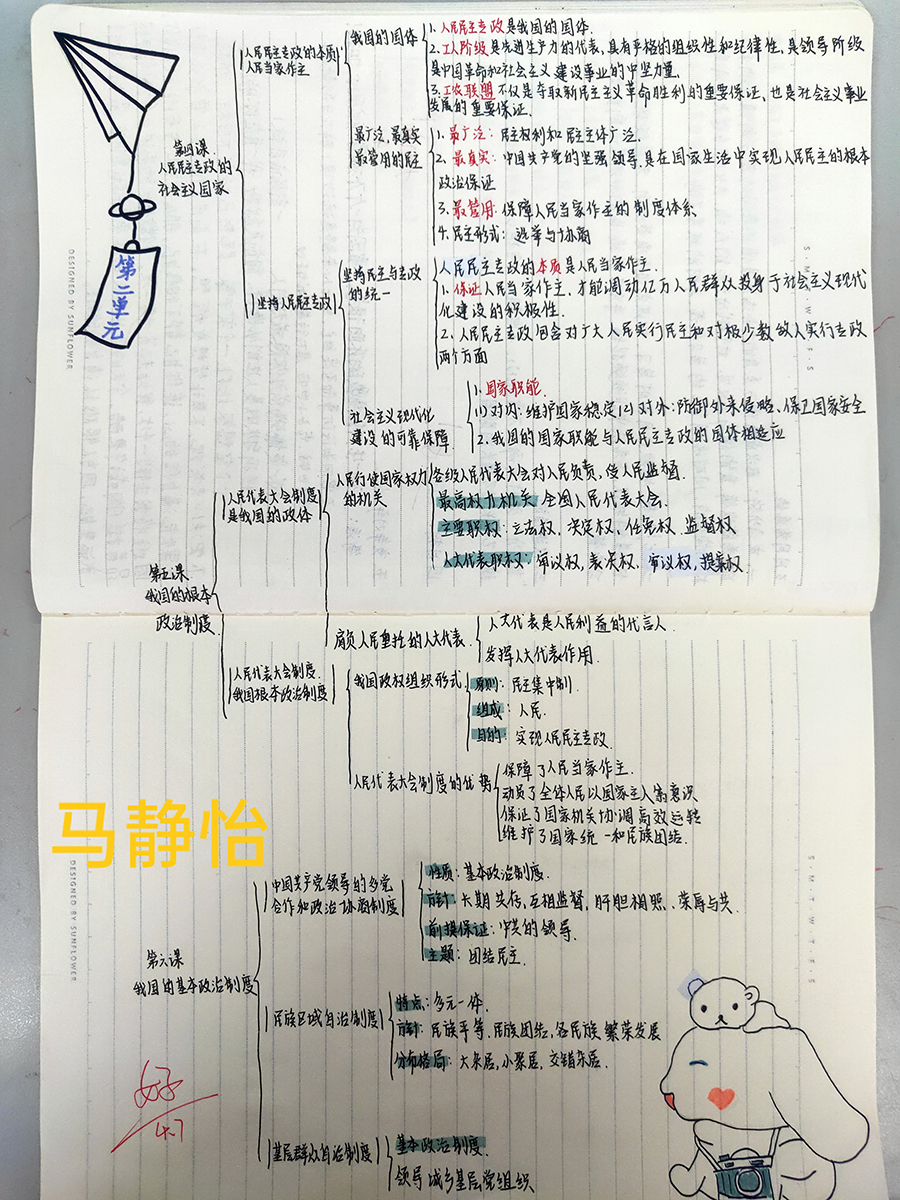 第二单元
DESIGNED BY SUNFLOWER
第四课
人民民主专政的
社会主义国家
人民民主专政的本质
人民当家作主
我国的国体
1.人民民主专政是我国的国体.
2.工人阶级是先进生产力的代表,具有严格的组织性和纪律性,是领导阶级
是中国革命和社会主义建设事业的中坚力量.
3.工农联盟不仅是夺取新民主主义革命胜利的重要保证、也是社会主义事业
发展的重要保证.
最广泛、最真实
最管用的民主
1.最广泛:民主权利和民主主体广泛.
2.最真实:中国共产党的坚强领导,是在国家生活中实现人民民主的根本
政治保证
3.最管用:保障人民当家作主的制度体系
4.民主形式:选举与协商
坚持人民民主专政
坚持民主与专政
的统一
人民民主专政的本质是人民当家作主.
1.保证人民当家作主,才能调动亿万人民群众投身于社会主义现代
化建设的积极性.
2.人民民主专政包含对广大人民实行民主和对极少数敌人实行专政
两个方面
社会主义现代化
建设的可靠保障
1.国家职能.
(1)对内:维护国家稳定(2)对外:防御外来侵略、保卫国家安全
2.我国的国家职能与人民民主专政的国体相适应
第五课
我国的根本
政治制度
人民代表大会制度
是我国的政体
人民行使国家权力
的机关
各级人民代表大会对人民负责,受人民监督.
最高权力机关 全国人民代表大会.
主要职权:立法权、决定权、任免权、监督权
人大代表职权:审议权,表决权、审议权,提案权.
肩负人民重托的人大代表
人大代表是人民利益的代言人
发挥人大代表作用.
人民代表大会制度.
我国根本政治制度
我国政权组织形式
原则:民主集中制.
组成:人民.
目的:实现人民民主专政.
人民代表大会制度的优势
保障了人民当家作主.
动员了全体人民以国家主人翁意识
保证了国家机关协调高效运转
维护了国家统一和民族团结.
马静怡
DESIGNED BY SUNFLOWER
S·M·T·W·T·F·S
第六课
我国的基本政治制度
中国共产党领导的多党
合作和政治协商制度
性质:基本政治制度.
方针:长期共存,互相监督,肝胆相照、荣辱与共.
前提保证:中共的领导.
主题:团结民主.
民族区域自治制度
特点:多元一体.
方针:民族平等、民族团结、各民族繁荣发展
分布格局:大杂居,小聚居,交错杂居.
基层群众自治制度
基本政治制度.
领导 城乡基层党组织.
好
4.7